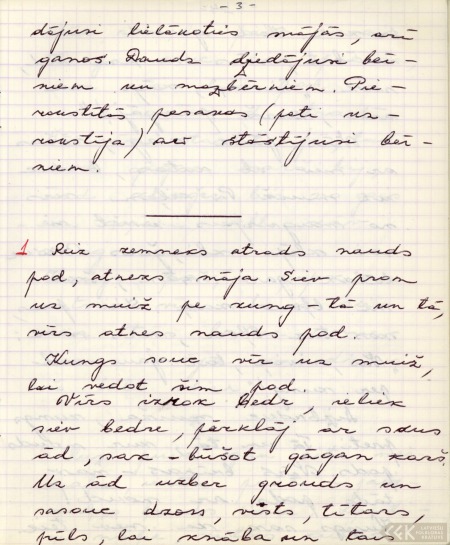 - 3 -
dājusi lielākoties mājās, arī
ganos. Daudz dziedājusi bēr-
niem un mazbērniem. Pie-
rakstītās pasakas (pati uz-
rakstīja) arī stāstījusi bēr-
niem.
1 Reiz zemneks atrads nauds
pod, atneks māja. Siev prom
uz muiž pe kung - tā un tā,
vīrs atnes, nauds pod.
Kungs souc vīr uz muiž,
lai vedot šim pod.
Vīrs izrok bedr, ieliek
siev bedre, pārklāj ar
ād, sak - būšot gāgan karš.
Uz ād uzber grouds un
sasouc dzoss, vists, tītars,
pīls, lai knāba un tais